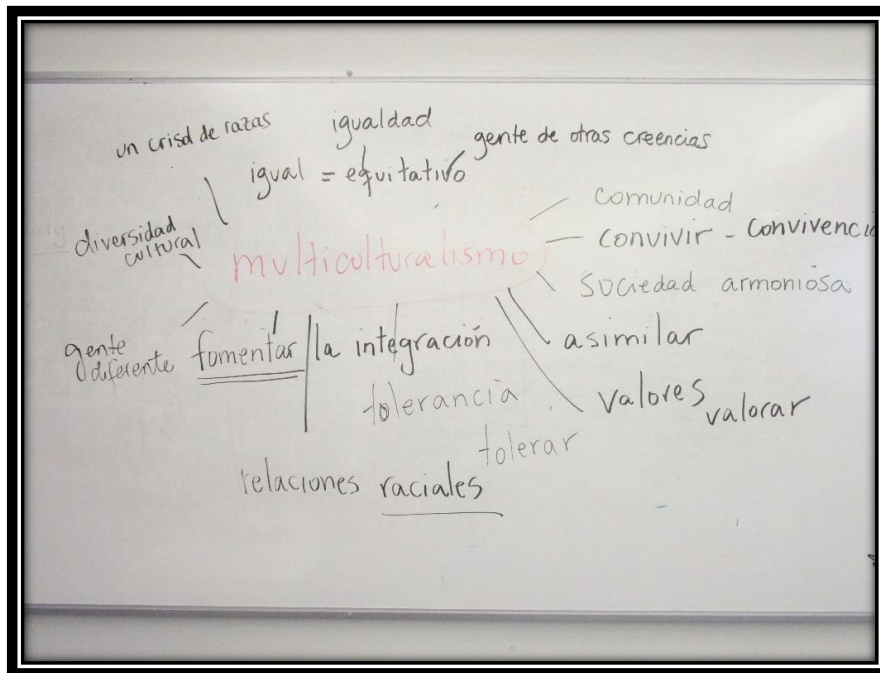 un crisol de razas
igualdad
gente de otras creencias
igual = equitativo
comunidad
diversidad
cultural
multiculturalismo
convivir - convivencia
sociedad armoniosa
gente
diferente
fomentar la integración
asimilar
tolerancia
valores
valorar
tolerar
relaciones raciales